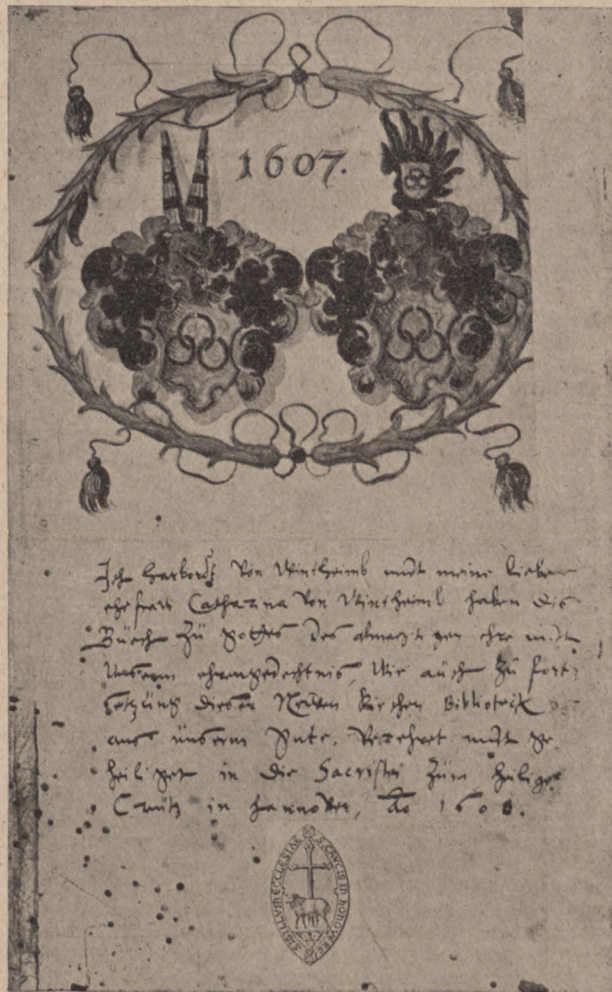 1607.
Ich Harbordt Von Wintheimb undt meine liebe
ehefraw Catharina Von Wintheimb haben dis
Buech Zu Gottes des almechtigen ehre undt
Unserm ehrengedechtnis, Wie auch Zu fort-
setzung dieser Newen Kirchen Bibliotek
aus unserm Gute, Verehret undt ge-
heiliget in die Sacristei Zum heilige
Creutz in Hannover, Ao 1608.
SIGILLVM ECCLESIAE S. CRVCIS IN HONOVERE